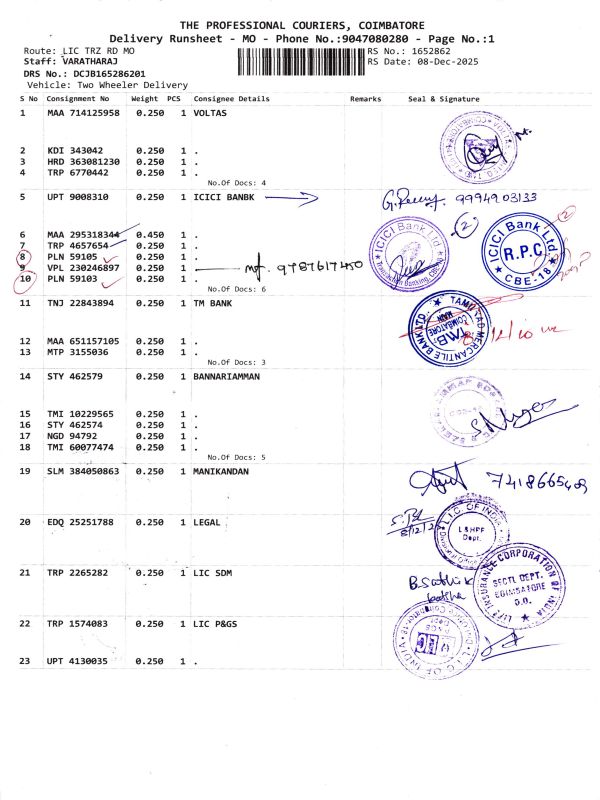 THE PROFESSIONAL COURIERS, COIMBATORE
Delivery Runsheet - MO - Phone No.:9047080280 - Page No.:1
Route: LIC TRZ RD MO RS No.: 1652862
Staff: VARATHARAJ RS Date: 08-Dec-2025
DRS No.: DCJB165286201
Vehicle: Two Wheeler Delivery
S No Consignment No Weight PCS Consignee Details Remarks Seal & Signature
1 MAA 714125958 0.250 1 VOLTAS
2 KDI 343042 0.250 1 .
3 HRD 363081230 0.250 1 .
4 TRP 6770442 0.250 1 .
No.Of Docs: 4
5 UPT 9008310 0.250 1 ICICI BANBK 9994903133
6 MAA 295318344 0.450 1 .
7 TRP 4657654 0.250 1 .
8 PLN 59105 0.250 1 .
9 VPL 230246897 0.250 1
10 PLN 59103 0.250 1 .
No.Of Docs: 6
ICICI Bank Ltd
ICICI Bank Ltd
R.P.C
CBE-18
11 TNJ 22843894 0.250 1 TM BANK
12 MAA 651157105 0.250 1 .
13 MTP 3155036 0.250 1 .
No.Of Docs: 3
TAMILNAD MERCANTILE BANK LTD.
TMB
COIMBATORE
MAIN
14 STY 462579 0.250 1 BANNARIAMMAN
15 TMI 10229565 0.250 1 .
16 STY 462574 0.250 1 .
17 NGD 94792 0.250 1 .
18 TMI 60077474 0.250 1 .
No.Of Docs: 5
19 SLM 384050863 0.250 1 MANIKANDAN
20 EDQ 25251788 0.250 1 LEGAL
L.I.C OF INDIA
L&HPF
Dept.
21 TRP 2265282 0.250 1 LIC SDM
LIFE INSURANCE CORPORATION OF INDIA
SECTL DEPT.
COIMBATORE
D.O.
22 TRP 1574083 0.250 1 LIC P&GS
23 UPT 4130035 0.250 1 .